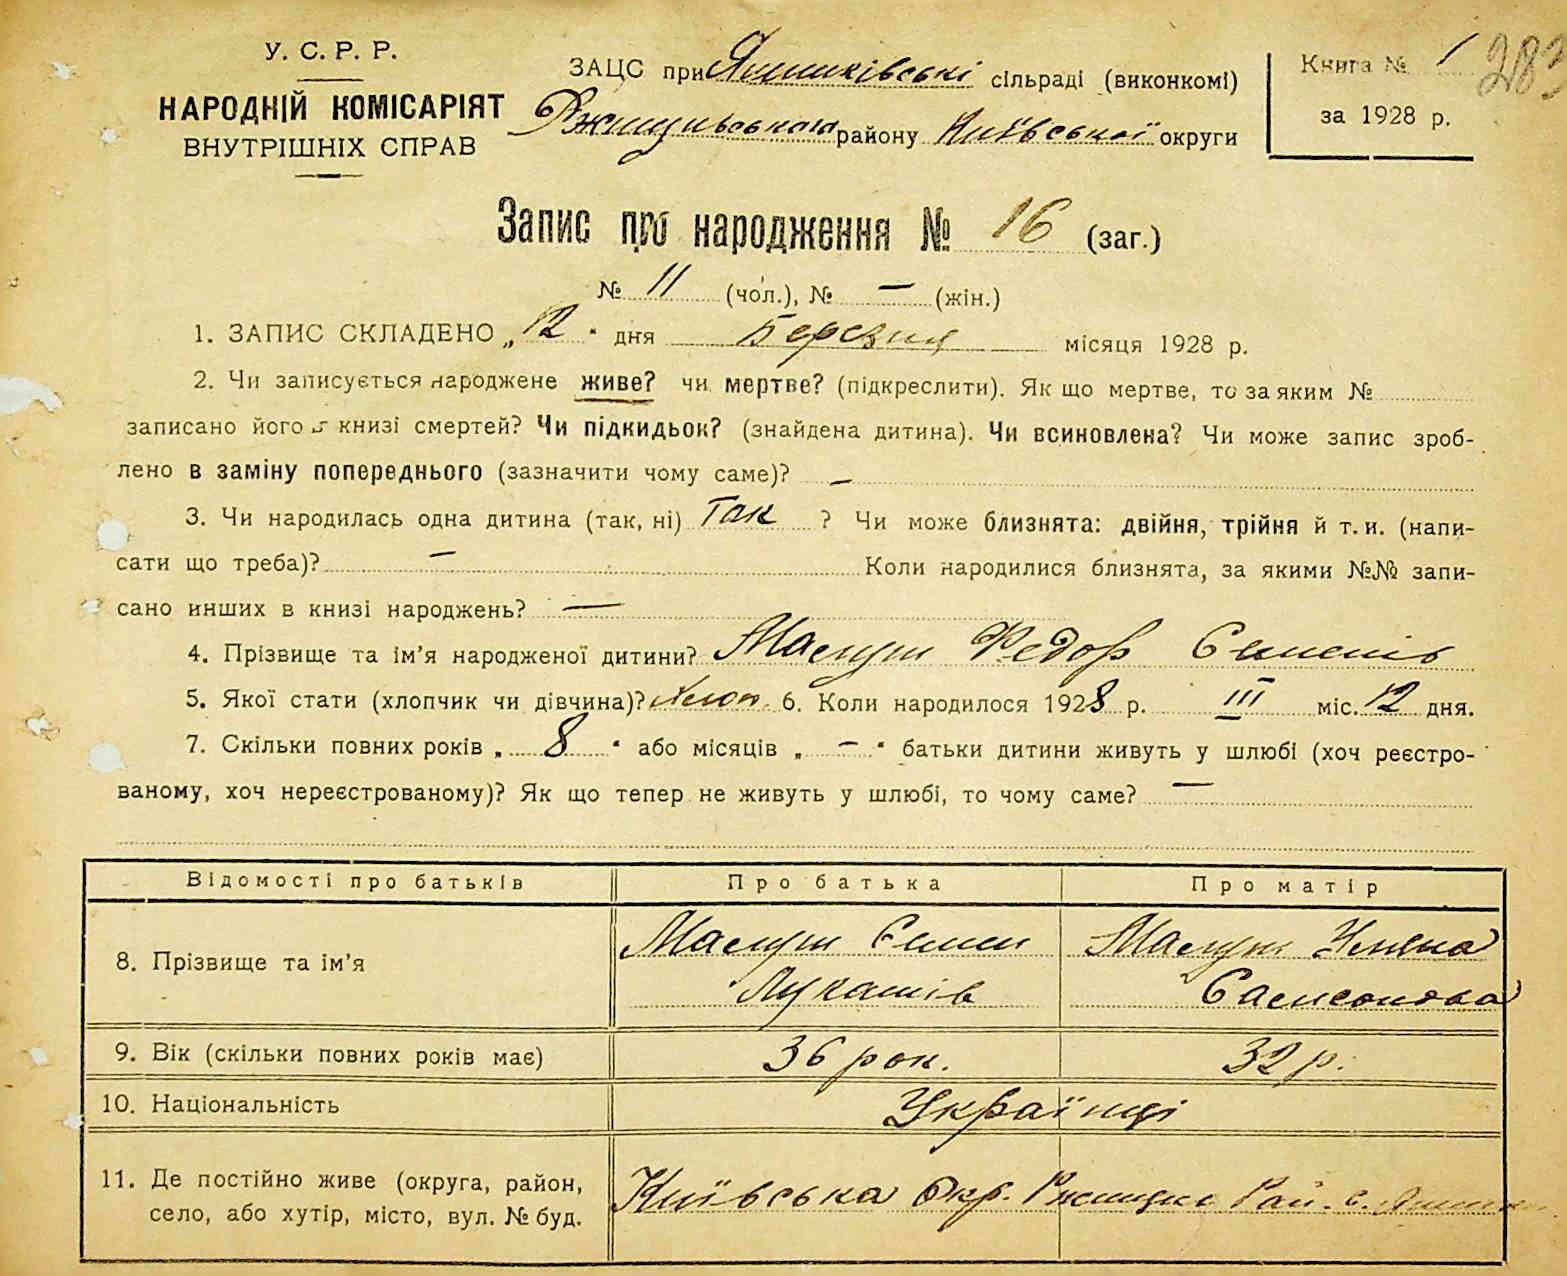 У. С. Р. Р.
НАРОДНІЙ КОМІСАРІЯТ
ВНУТРІШНІХ СПРАВ
ЗАЦС при Яшниківські сільраді (виконкомі)
Ржищівського району Київської округи
Книга № 1
283
за 1928 р.
Запис про народження № 16 (заг.)
№ 11 (чол.), № — (жін.)
1. ЗАПИС СКЛАДЕНО „12" дня Березня місяця 1928 р.
2. Чи записується народжене живе? чи мертве? (підкреслити). Як що мертве, то за яким №
записано його в книзі смертей? Чи підкидьок? (знайдена дитина). Чи всиновлена? Чи може запис зроб-
лено в заміну попереднього (зазначити чому саме)? —
3. Чи народилась одна дитина (так, ні) Так ? Чи може близнята: двійня, трійня й т. и. (напи-
сати що треба)? — Коли народилися близнята, за якими №№ запи-
сано инших в книзі народжень? —
4. Прізвище та ім'я народженої дитини? Федор Семенів
5. Якої стати (хлопчик чи дівчина)? Хлоп. 6. Коли народилося 1928 р. III міс. 12 дня.
7. Скільки повних років „ 8 " або місяців „ — " батьки дитини живуть у шлюбі (хоч реєстро-
ваному, хоч нереєстрованому)? Як що тепер не живуть у шлюбі, то чому саме? —
Відомості про батьків Про батька Про матір
8. Прізвище та ім'я
Семен
Лукашів
Самсонова
9. Вік (скільки повних років має) 36 рок. 32 р.
10. Національність Українці
11. Де постійно живе (округа, район,
село, або хутір, місто, вул. № буд.
Київська Окр. Рай. с.